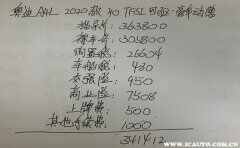 奥迪A4L 2020款 40 TFSI 四驱-豪华动感
指导价: 363800
裸车价: 305800
购置税: 26604
车船税: 480
交强险: 950
商业险: 7508
上牌费: 500
1000
341412
WWW.XCAUTO.COM.CN